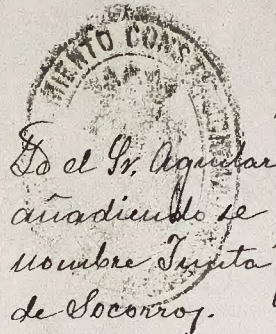 MIENTO CONST
Do el Sr. Aguilar
añadiendo se
nombre Junta
de Socorros.